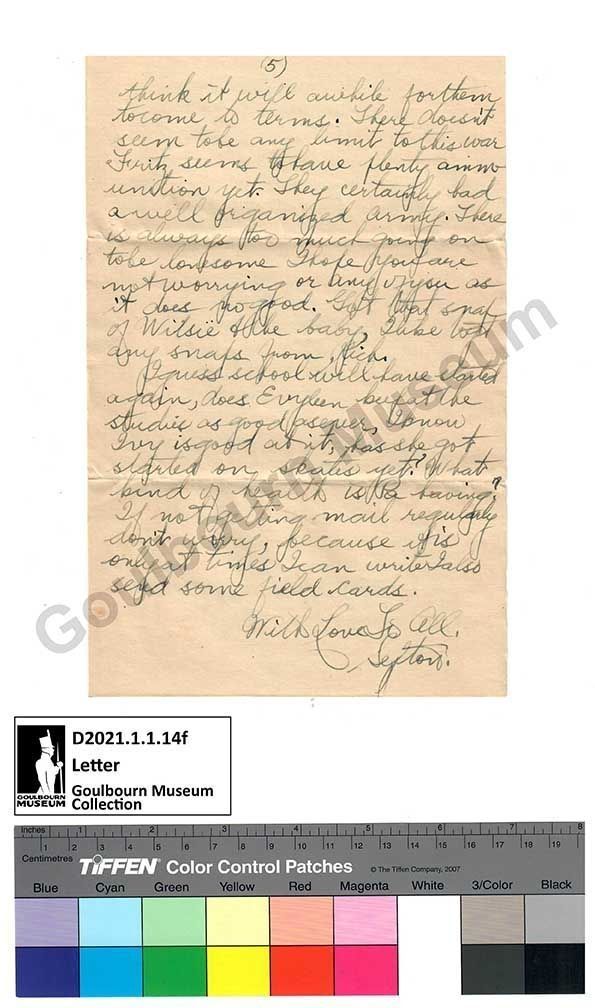 (5)
think it will awhile for them
to come to terms. There doesn't
seem to be any limit to this war
Fritz seems to have plenty amm
unition yet. They certainly had
a well organized army. There
is always too much going on
to be lonesome I hope you are
not worrying or any of you as
it does no good. Got that snap
of Wilsie & the baby, I like
any snaps from
I guess school will have started
again, does Evyleen
studies as good as ever, I know
Ivy is good at it, has she got
started on skates yet? What
kind of health is Pa having?
If not getting mail regularly
don't worry, because it is
only at times I can write I also
send some field cards.
With Love To All.
Sefton.
Goulbourn Museum
D2021.1.1.14f
Letter
Goulbourn Museum
Collection
GOULBOURN
MUSEUM
Inches 1 2 3 4 5 6 7 8
Centimetres 1 2 3 4 5 6 7 8 9 10 11 12 13 14 15 16 17 18 19
TIFFEN Color Control Patches © The Tiffen Company, 2007
Blue Cyan Green Yellow Red Magenta White 3/Color Black